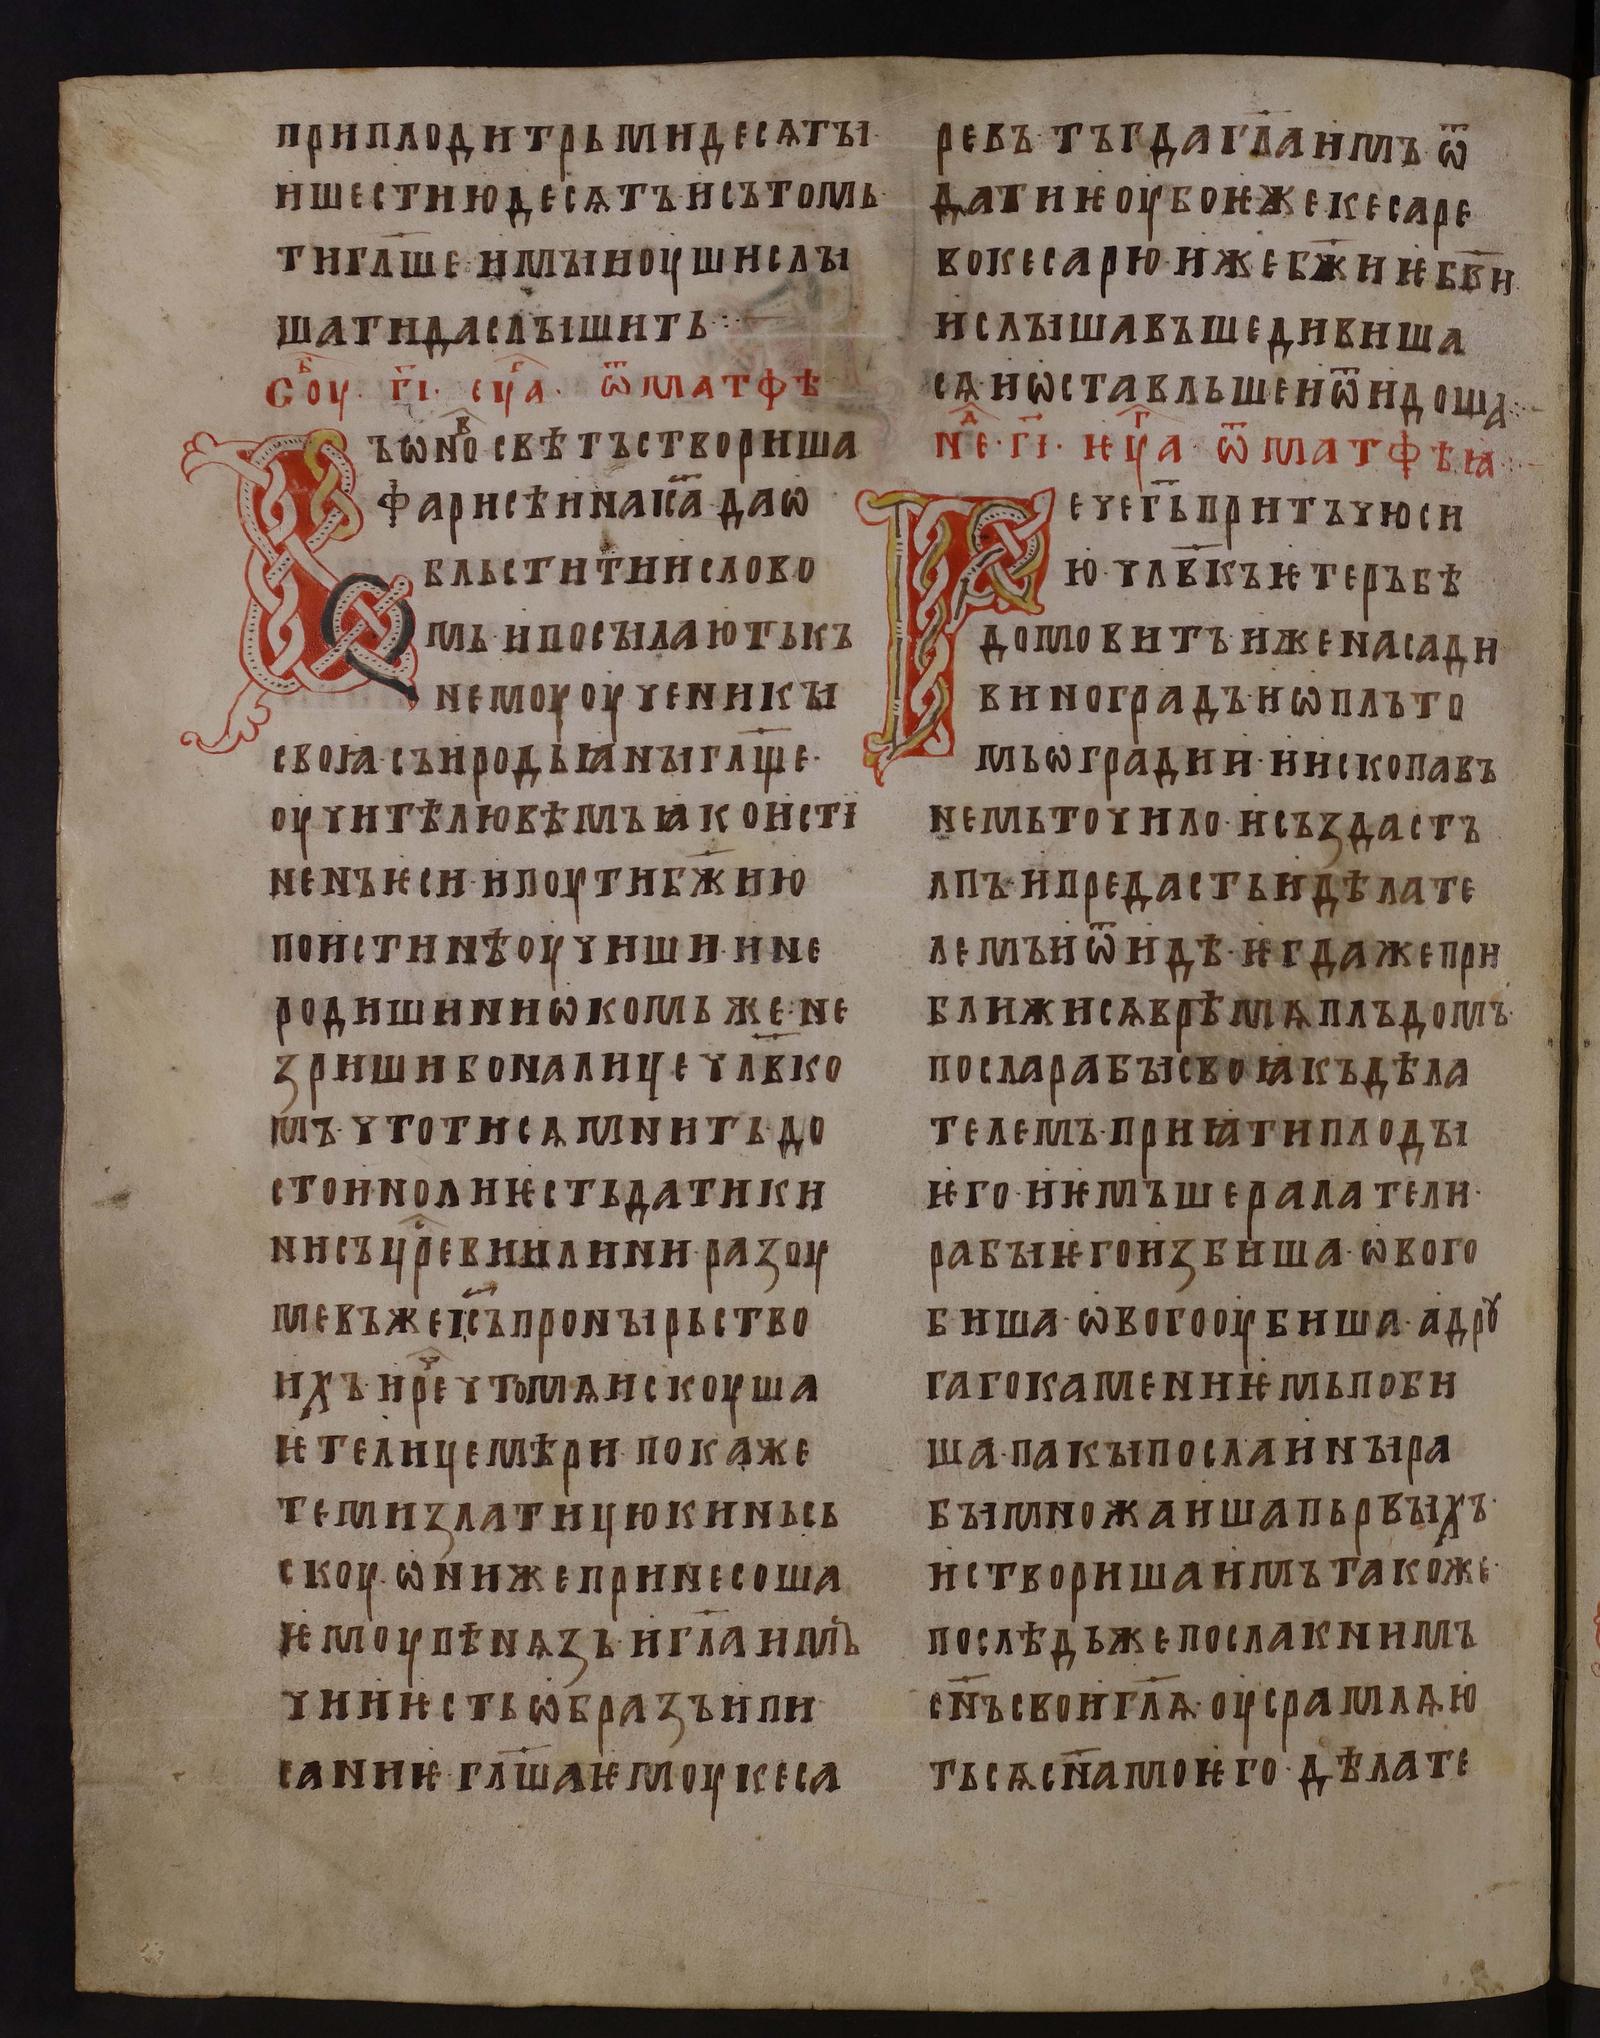 приплоди трьми десѧтъі·
и шестию десѧтъ· и сътомь·
ти гл҃ше· имъіи оуши слъі
шати да слъішить :·
Соу҃б· г҃і· еу҃га· ѿ матфѣ
Въ ѡно в҃ свѣтъ створиша
фарисѣи на іс҃а· да ѡ
бльстити и слово
мь· и посъілають къ
немоу оученикъі
своꙗ· съ иродьꙗнъі гл҃ще·
оучителю вѣмъ ꙗко исті
ненъ ѥси· и поути бж҃ию
поистинѣ оучиши· и не
родиши ни ѡ комьже· не
зриши бо на лице чл҃вко
мъ· что ти сѧ мнить· до
стоино ли ѥсть дати ки
нисъ цр҃еви или ни· разоу
мевъ же іс҃ъ пронъірьство
ихъ· и ре҃ч что мѧ искоуша
ѥте лицемѣри· покаже
те ми златицю киньсь
скоу· ѡни же принесоша
ѥмоу пѣнѧзь· и гл҃а имъ
чии ѥсть ѡбразъ и пи
саниѥ· гл҃ша ѥмоу кеса
ревъ· тъгда гл҃а имъ ѿ
дати ѥ оубо ꙗже кесаре
во кесарю· и ꙗже бж҃иꙗ бв҃и·
и слъішавъше дивиша
сѧ· и ѡставльше и ѿидоша :·
Не҃д· г҃і· ѥу҃га· ѿ матфѣꙗ :·
Рече г҃ь притъчю си
ю· чл҃вкъ ѥтеръ бѣ
домовитъ· иже насади
виноградъ· и ѡплъто
мь ѡгради и· и ископа въ
немь точило· и създа стъ
лпъ· и предасть и дѣлате
лемъ и ѿиде· ѥгда же при
ближи сѧ врѣмѧ плъдомъ·
посла рабъі своꙗ къ дѣла
телемъ· приꙗти плодъі
ѥго· и ѥмъше ралатели·
рабъі ѥго избиша· ѡвого
биша· ѡвого оубиша· а дрꙋ
гаго камениѥмь поби
ша· пакъі посла инъі ра
бъі множаиша пьрвъіхъ·
и створиша имъ такоже·
послѣдь же посла к нимъ
сн҃ъ свои гл҃ѧ· оусрамлѧю
ть сѧ сн҃а моѥго· дѣлате